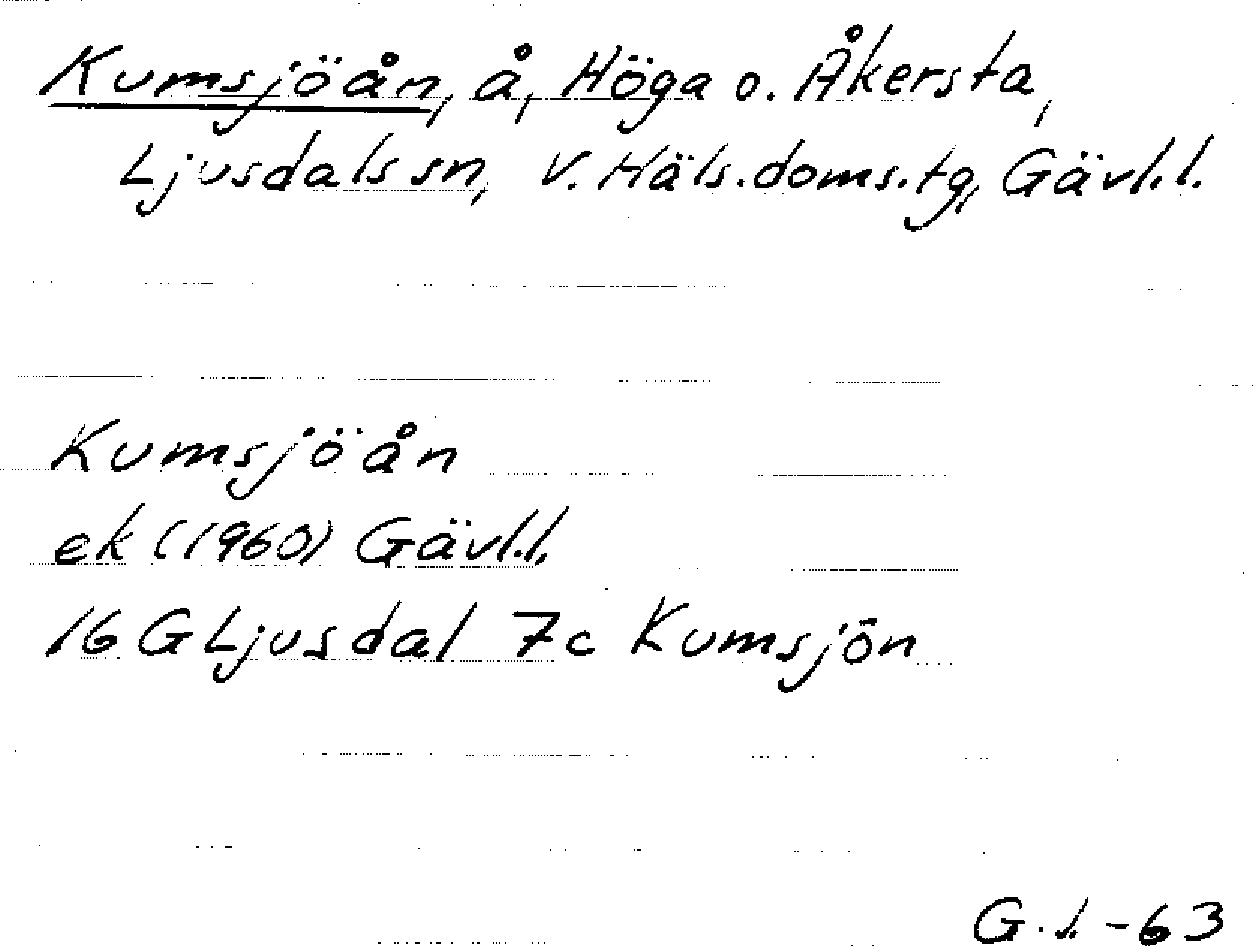 Kumsjöån, å, Höga o. Åkersta,
Ljusdals sn, V. Häls. doms. tg, Gävl.l.
Kumsjöån
ek (1960) Gävl.l.
16 G Ljusdal 7c Kumsjön
G.J. -63